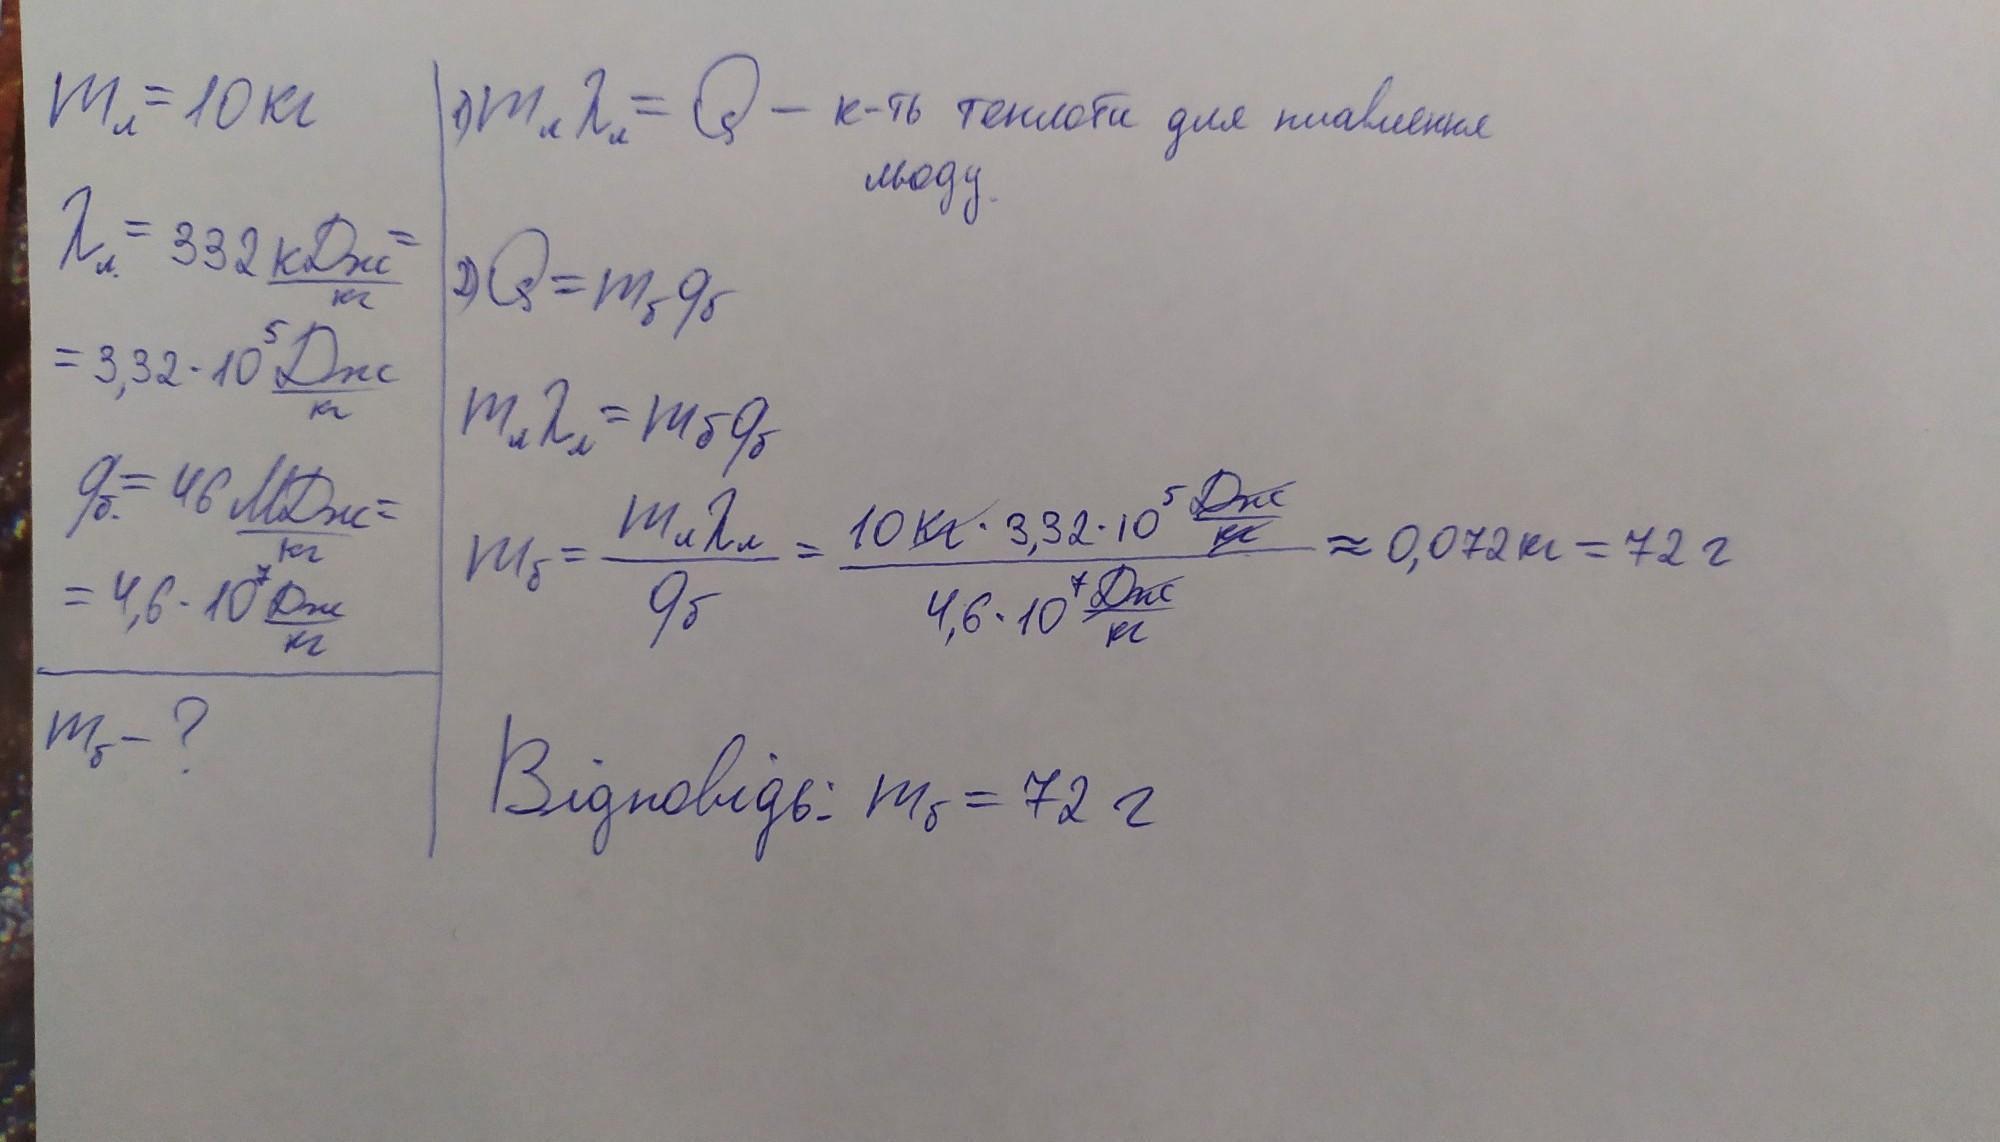 mл = 10 кг
λл. = 332 кДж/кг =
= 3,32 · 10⁵ Дж/кг
qб. = 46 МДж/кг =
= 4,6 · 10⁷ Дж/кг
mб – ?
1) mл λл = Q – к-ть теплоти для плавлення
льоду.
2) Q = mб qб
mл λл = mб qб
mб = mл λл / qб = 10 кг · 3,32 · 10⁵ Дж/кг / 4,6 · 10⁷ Дж/кг ≈ 0,072 кг = 72 г
Відповідь: mб = 72 г